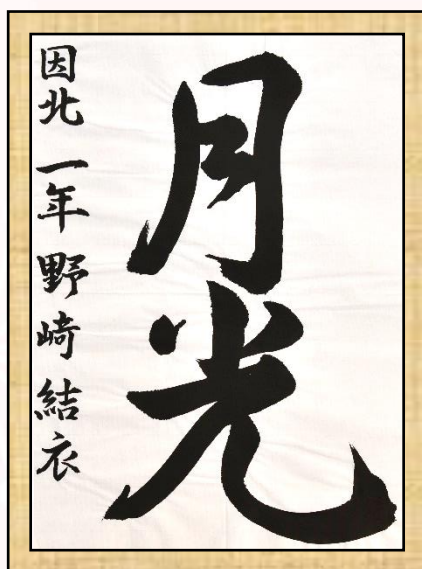 月光
因北 一年 野崎 結衣